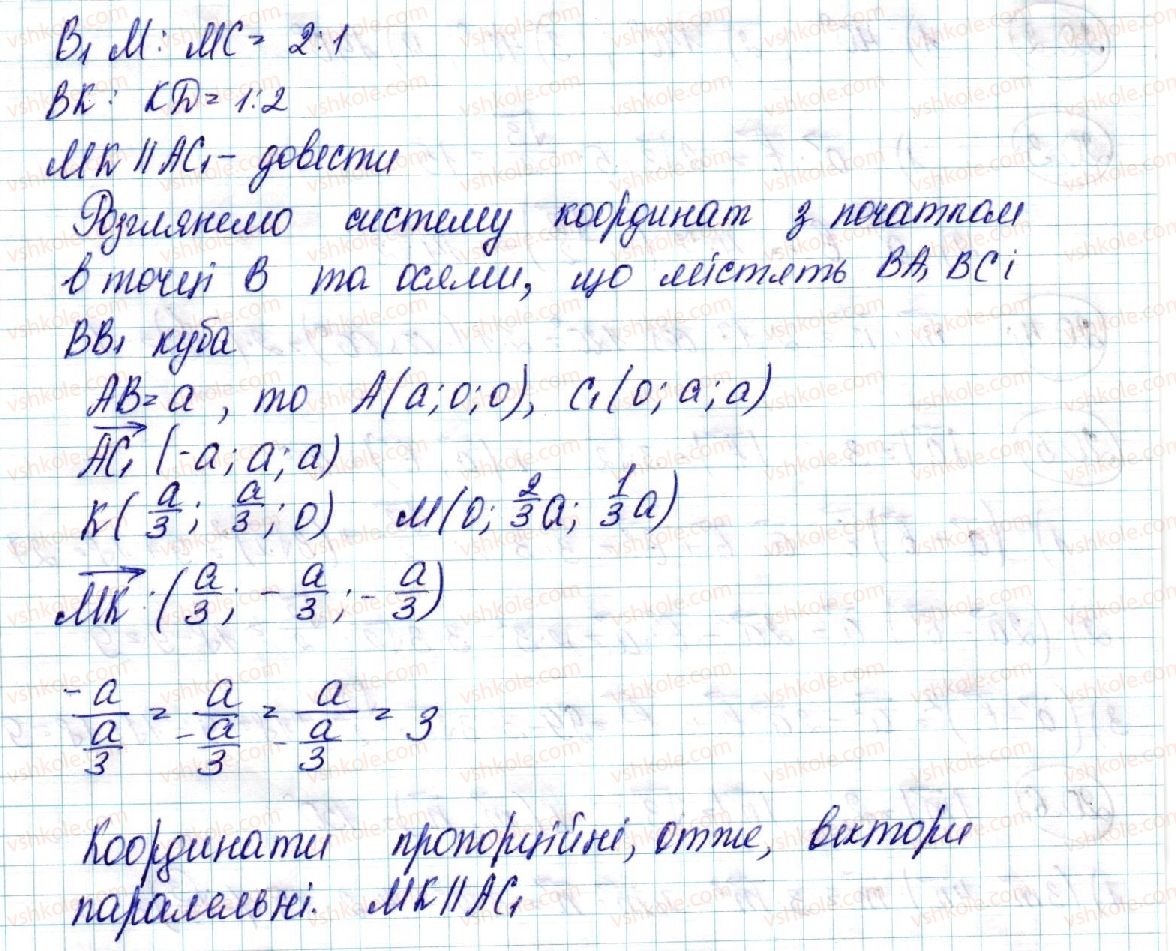 B₁M : MC = 2:1
BK : KD = 1:2
MK || AC₁ - довести
Розглянемо систему координат з початком
в точці B та осями, що містять BA, BC і
BB₁ куба
AB = a, то A(a; 0; 0), C₁(0; a; a)
→AC₁ (-a; a; a)
K(a/3; a/3; 0) M(0; 2/3a; 1/3a)
→MK : (a/3; -a/3; -a/3)
-a/(a/3) = a/(-a/3) = a/(-a/3) = 3
Координати пропорційні, отже, вектори
паралельні. MK || AC₁